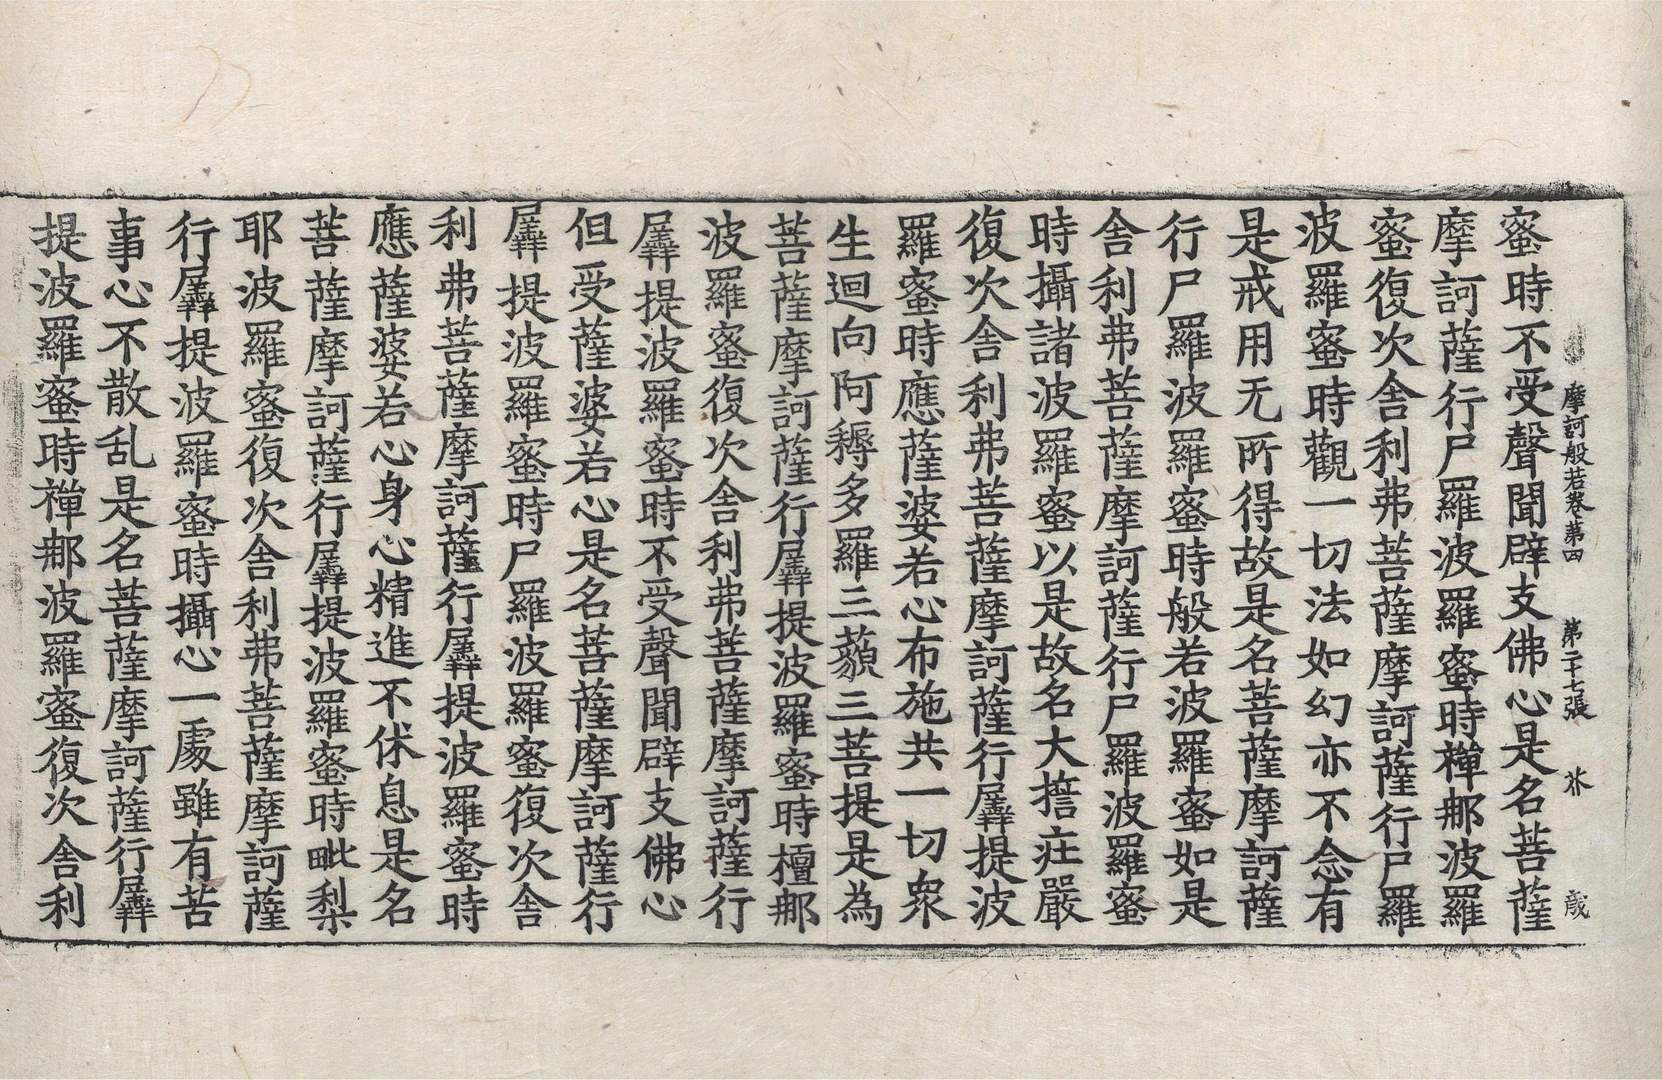 摩訶般若卷第四 第二十七張 
蜜時不受聲聞辟支佛心是名菩薩
摩訶薩行尸羅波羅蜜時禪那波羅
蜜復次舍利弗菩薩摩訶薩行尸羅
波羅蜜時觀一切法如幻亦不念有
是戒用无所得故是名菩薩摩訶薩
行尸羅波羅蜜時般若波羅蜜如是
舍利弗菩薩摩訶薩行尸羅波羅蜜
時攝諸波羅蜜以是故名大擔莊嚴
復次舍利弗菩薩摩訶薩行羼提波
羅蜜時應薩婆若心布施共一切衆
生迴向阿耨多羅三藐三菩提是為
菩薩摩訶薩行羼提波羅蜜時檀那
波羅蜜復次舍利弗菩薩摩訶薩行
羼提波羅蜜時不受聲聞辟支佛心
但受薩婆若心是名菩薩摩訶薩行
羼提波羅蜜時尸羅波羅蜜復次舍
利弗菩薩摩訶薩行羼提波羅蜜時
應薩婆若心身心精進不休息是名
菩薩摩訶薩行羼提波羅蜜時毗梨
耶波羅蜜復次舍利弗菩薩摩訶薩
行羼提波羅蜜時攝心一處雖有苦
事心不散乱是名菩薩摩訶薩行羼
提波羅蜜時禪那波羅蜜復次舍利